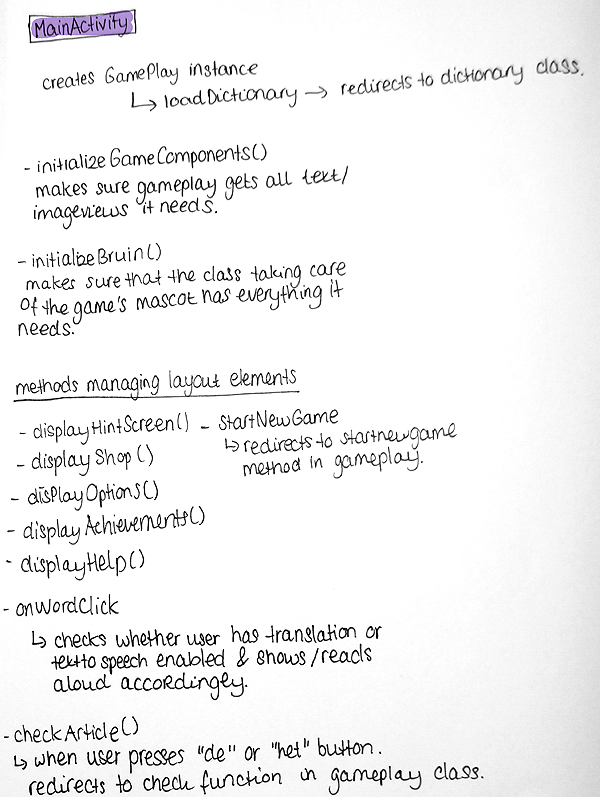 MainActivity
creates GamePlay instance
↳ loadDictionary → redirects to dictionary class.
- initializeGameComponents()
makes sure gameplay gets all text/
imageviews it needs.
- initializeBruin()
makes sure that the class taking care
of the game's mascot has everything it
needs.
methods managing layout elements
- displayHintScreen()
- displayShop()
- displayOptions()
- displayAchievements()
- displayHelp()
- StartNewGame
↳ redirects to startnewgame
method in gameplay.
- onWordClick
↳ checks whether user has translation or
text to speech enabled & shows/reads
aloud accordingly.
- checkArticle()
↳ when user presses "de" or "het" button.
redirects to check function in gameplay class.